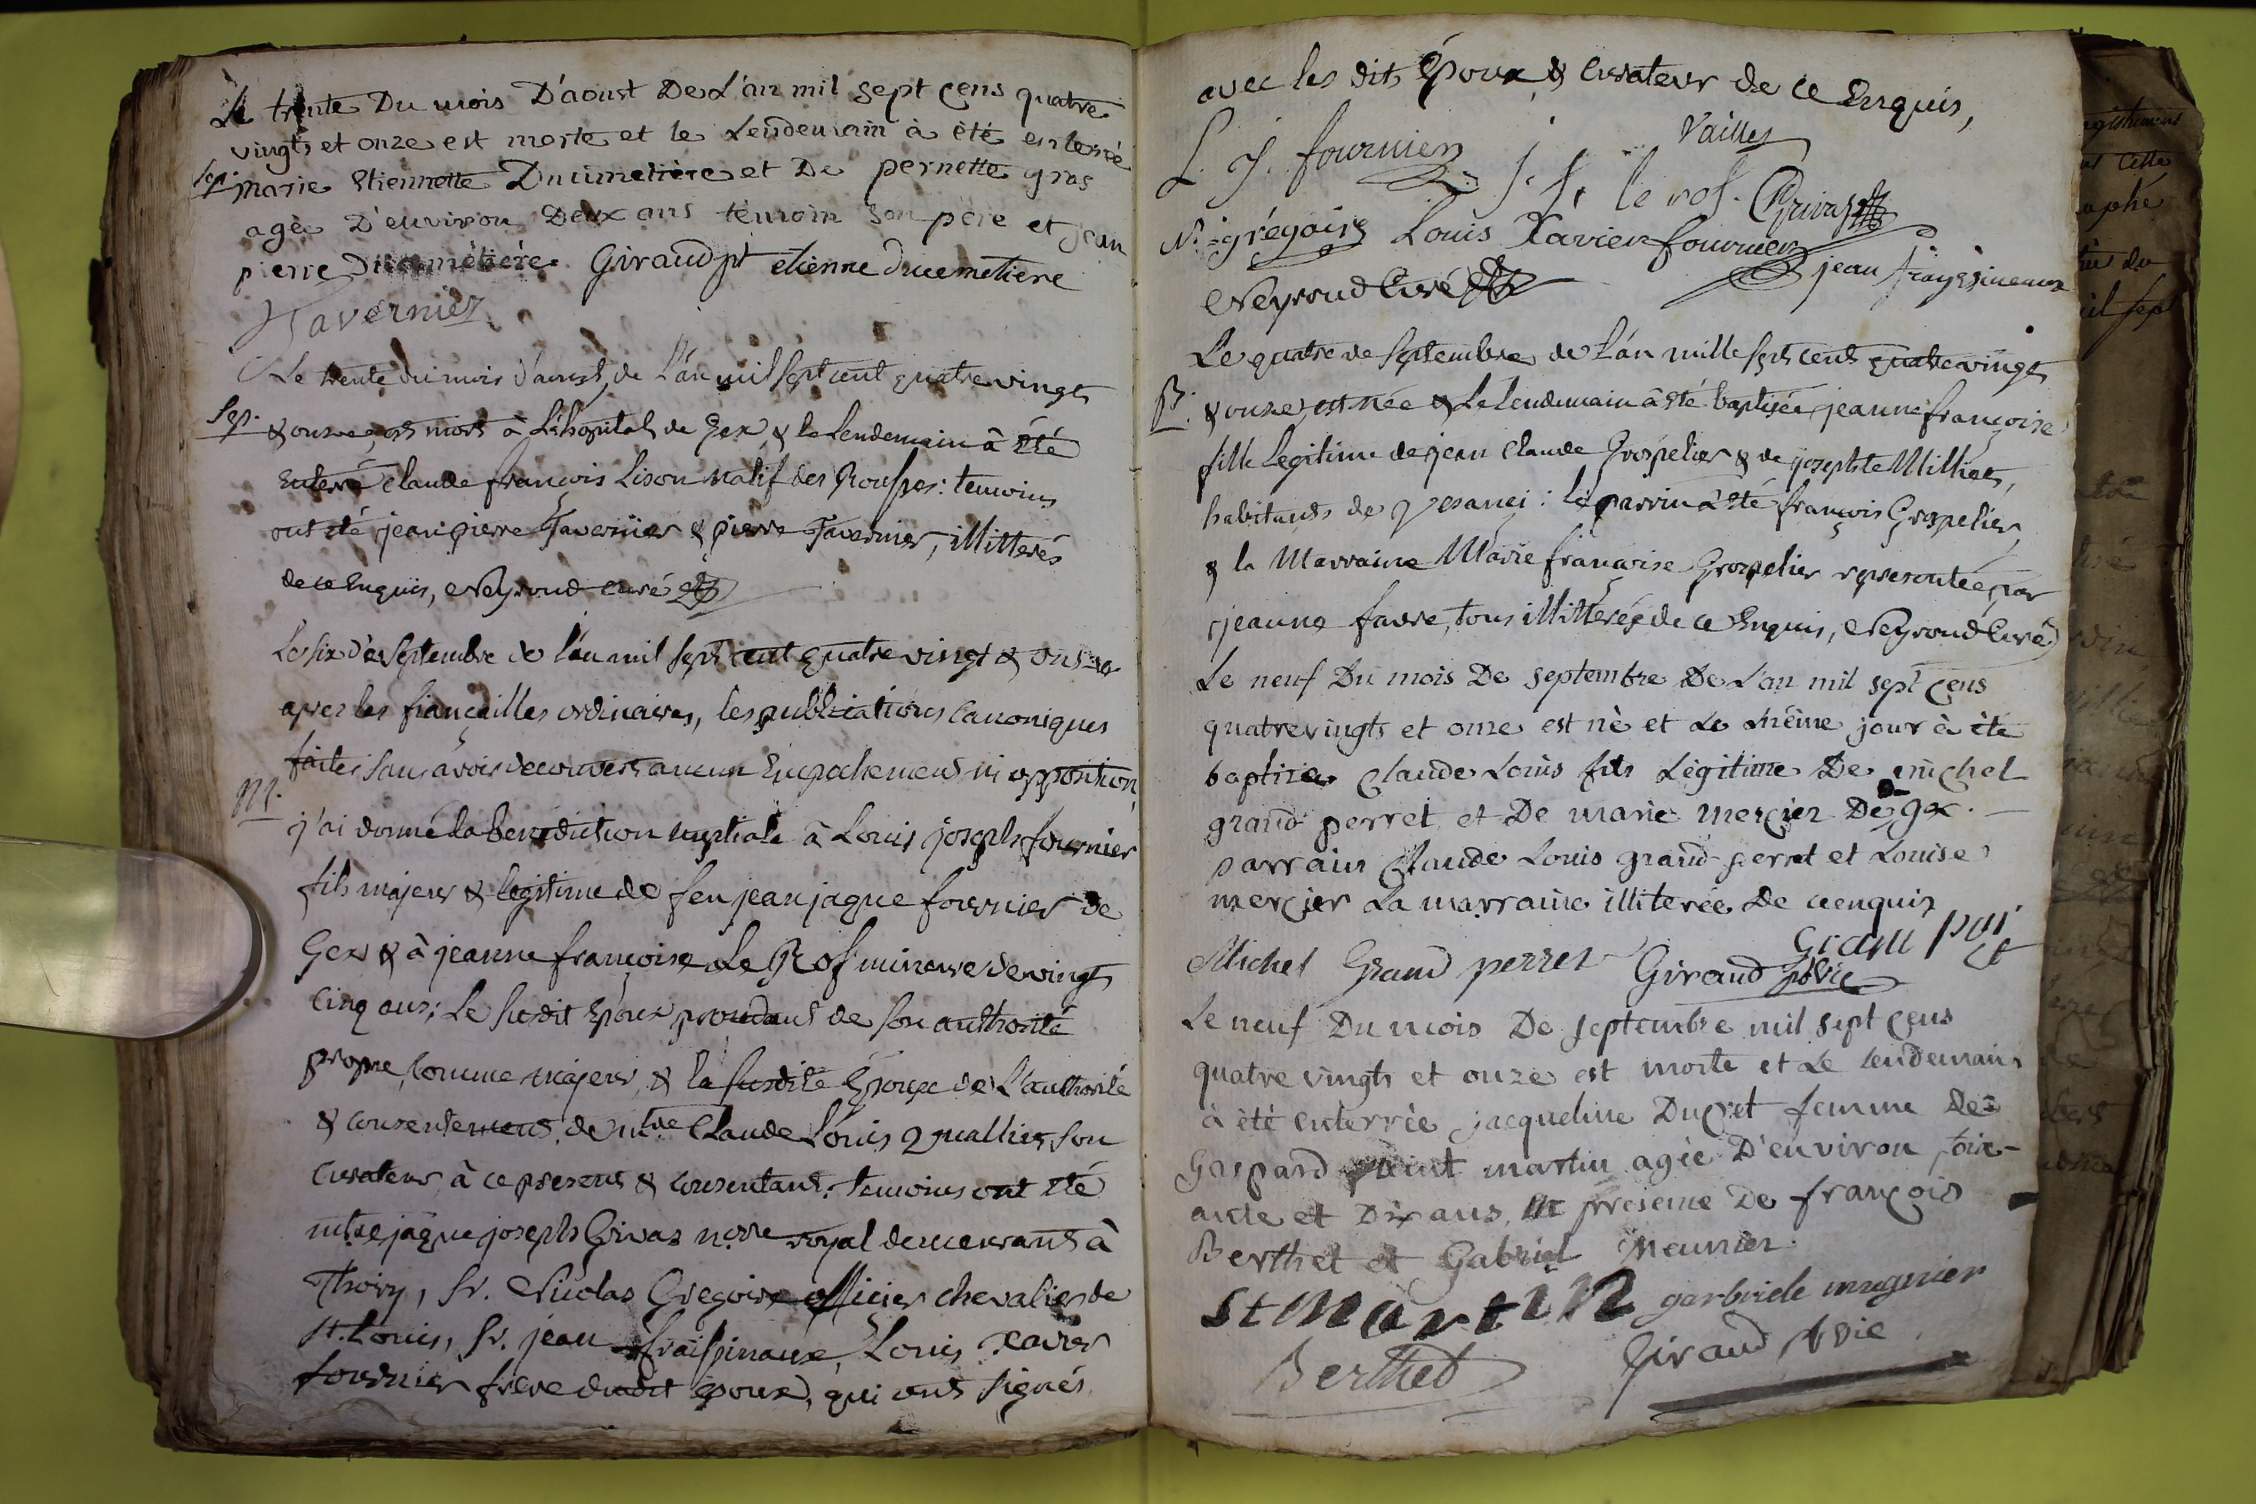 Le trente Du mois D'aoust De L'an mil sept cens quatre
vingts et onze est morte et le Lendemain à été enterrée
Sep. marie Etiennette Ducimetière et De pernette gros
agée D'environ Deux ans témoin son père et jean
pierre Ducimetière Giraud pt etienne ducemetiere
Tavernier
Le trente du mois d'aoust de L'an mil sept cent quatre vingt
Sep. & onze, est mort à L'hopital de Gex, & le Lendemain â été
Enterré Claude françois Lison natif des Rousses: temoins
ont été jean pierre Tavernier & pierre Tavernier, illitterés
de ce Enquis, Neyroud Curé
Le six de Septembre de l'an mil sept cent quatre vingt & onze
apres les fiançailles ordinaires, les publications Canoniques
faites sans avoir decouvert aucun Empechement ni opposition,
M. j'ai donné la benediction nuptiale â Louis joseph fournier
fils majeur & legitime de feu jean jaque fournier de
Gex & â jeanne françoise Le Ros mineure de vingt
Cinq ans; Le susdit Epoux procedant de son authorité
propre, comme majeur, & la susdite Epouse de L'authorité
& consentement de mtre Claude Louis son
Curateur à ce present & consentant. temoins ont été
mtre jaque joseph Grivaz royal demeurant à
Thoiry, Sr. Nicolas Gregoire officier chevalier de
St. Louis, Sr. jean Louis xavier
fournier frere dudit Epoux, qui ont signés
avec les dits Epoux & Curateur de ce Enquis,
L. J. fournier Vaillet
j. f. le ros. Grivaz
N. grégoire Louis Xavier fournier
Neyroud Curé jean
Le quatre de Septembre de L'an mille sept cent quatre vingt
B. & onze, est née & Le Lendemain â été baptisée jeanne françoise
fille Legitime de jean Claude Grospelier & de josephte Milliet,
habitants de Vesanci: le parrin â été françois Grospelier,
& la Marraine Marie françoise Grospelier representée par
jeanne favre, tous illitterés de ce Enquis, Neyroud Curé
Le neuf Du mois De septembre De L'an mil sept cens
quatrevingts et onze est né et Le même jour à été
baptisé Claude Louis fils Légitime De michel
grand perret et De marie mercier De gex.
parrain Claude Louis grand perret et Louise
mercier La marraine illiterée De ce enquis
Michel Grand perret Giraud pt Vic
Le neuf Du mois De septembre mil sept cens
quatre vingts et onze est morte et Le Lendemain
à été enterrée jacqueline Ducret femme De
Gaspard saint martin agée D'environ soix-
ante et Dix ans, en présence De françois
Berthet et Gabriel Meunier.
St martin garbriele mugnier
Berthet Giraud pt Vic